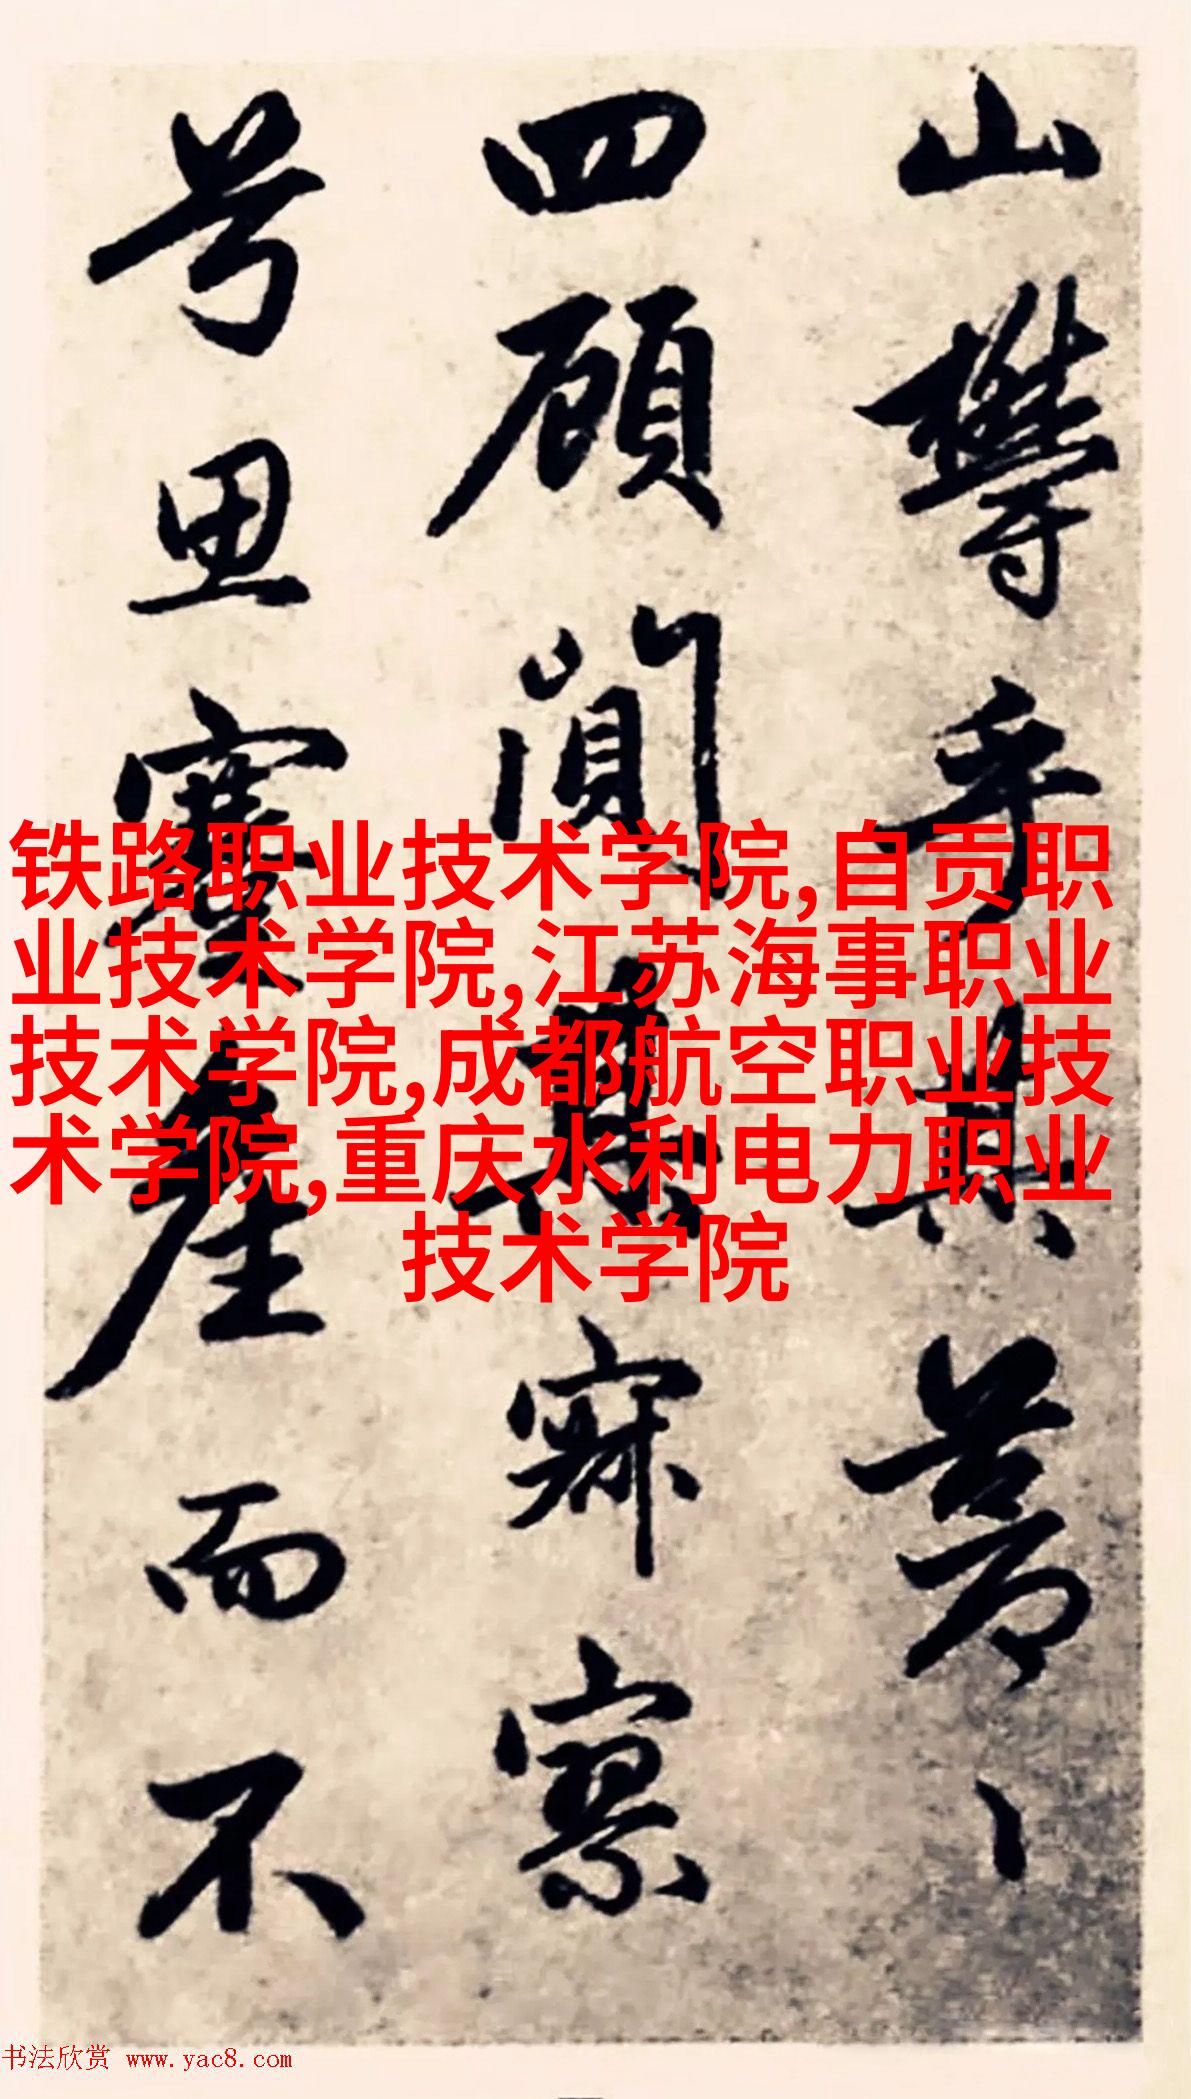 山欝乎其蒼〻
四顧闃其寂寥
兮思蹇產而不
铁路职业技术学院,自贡职
业技术学院,江苏海事职业
技术学院,成都航空职业技
术学院,重庆水利电力职业
技术学院
书法欣赏 www.yac8.com